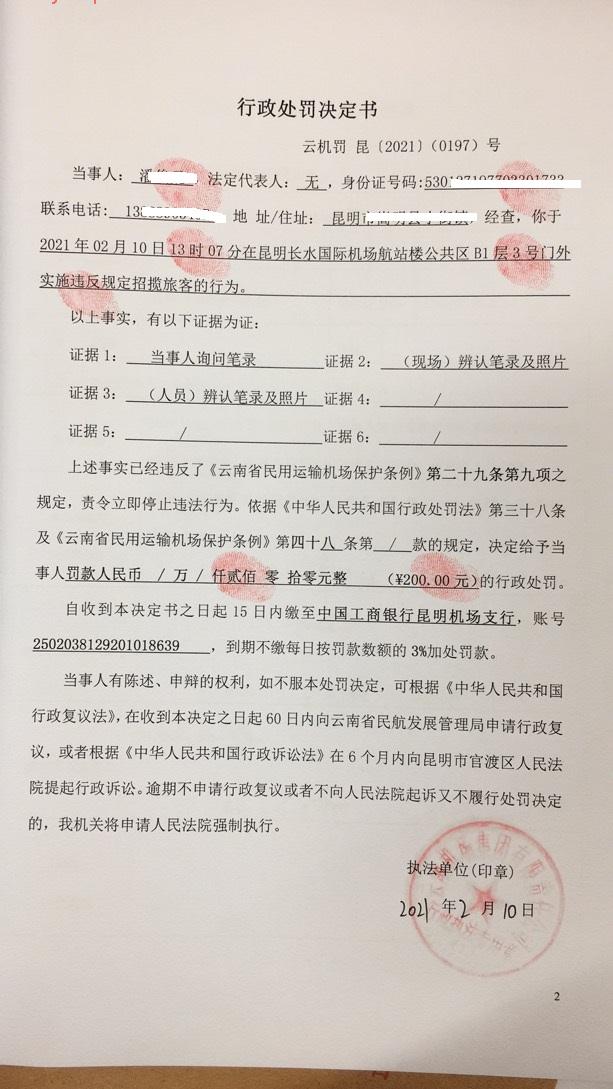 行政处罚决定书
云机罚 昆〔2021〕（0197）号
当事人： 潘 法定代表人： 无 ，身份证号码:530
联系电话: 13 地 址/住址: 昆明市 ，经查，你于
2021 年 02 月 10 日 13 时 07 分在昆明长水国际机场航站楼公共区 B1 层 3 号门外
实施违反规定招揽旅客的行为。
以上事实，有以下证据为证：
证据 1： 当事人询问笔录 证据 2： （现场）辨认笔录及照片
证据 3： （人员）辨认笔录及照片 证据 4： /
证据 5： / 证据 6： /
上述事实已经违反了《云南省民用运输机场保护条例》第二十九条第九项之
规定，责令立即停止违法行为。依据《中华人民共和国行政处罚法》第三十八条
及《云南省民用运输机场保护条例》第四十八 条第 / 款的规定，决定给予当
事人罚款人民币 / 万 / 仟贰佰 零 拾零元整 （¥200.00 元）的行政处罚。
自收到本决定书之日起 15 日内缴至中国工商银行昆明机场支行，账号
2502038129201018639 ，到期不缴每日按罚款数额的 3%加处罚款。
当事人有陈述、申辩的权利，如不服本处罚决定，可根据《中华人民共和国
行政复议法》，在收到本决定之日起 60 日内向云南省民航发展管理局申请行政复
议，或者根据《中华人民共和国行政诉讼法》在 6 个月内向昆明市官渡区人民法
院提起行政诉讼。逾期不申请行政复议或者不向人民法院起诉又不履行处罚决定
的，我机关将申请人民法院强制执行。
执法单位(印章)
2021 年 2 月 10 日
2